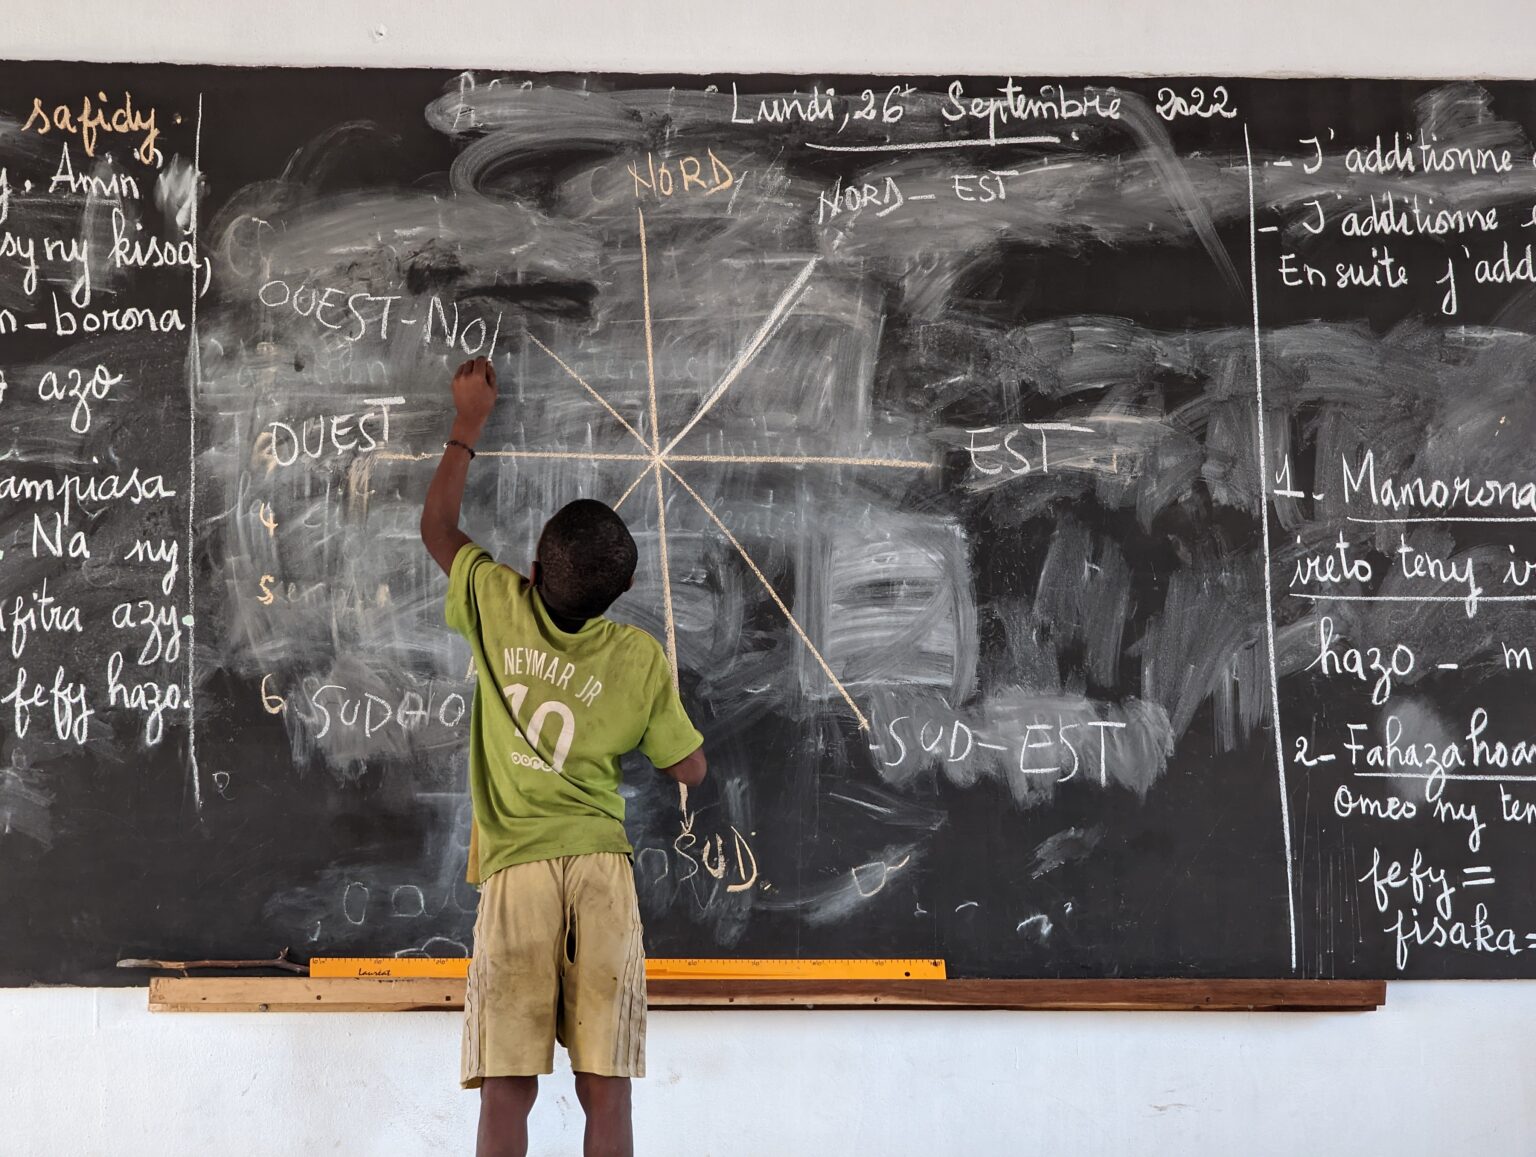 safidy.
y. Amin'
sy ny kisoa,
n-borona
azo
ampiasa
. Na ny
fitra azy.
fefy hazo.
Lundi, 26 Septembre 2022
NORD
NORD-EST
OUEST-NO
OUEST
EST
4
5
6 SUD-O
-SUD-EST
SUD.
NEYMAR JR
10
Lauréat
- J'additionne
- J'additionne
Ensuite j'add
1- Mamorona
ireto teny ir
hazo - m
2- Fahazahoa
Omeo ny ten
fefy =
fisaka =